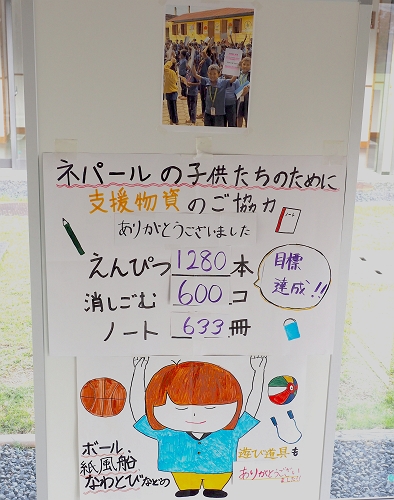 ネパールの子供たちのために
支援物資のご協力
ありがとうございました
えんぴつ 1280 本
消しごむ 600 コ
ノート 633 冊
目標
達成!!
ボール、
紙風船
なわとびなどの
遊び道具も
ありがとうござい
ました!!